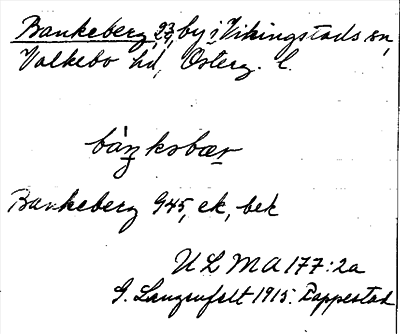 Bankeberg 23, by i Vikingstads sn,
Valkebo hd, Österg. l.
bàŋksbær
Bankeberg 945, ek, bek
ULMA 177:2a
G. Langenfelt 1915. Rappestad